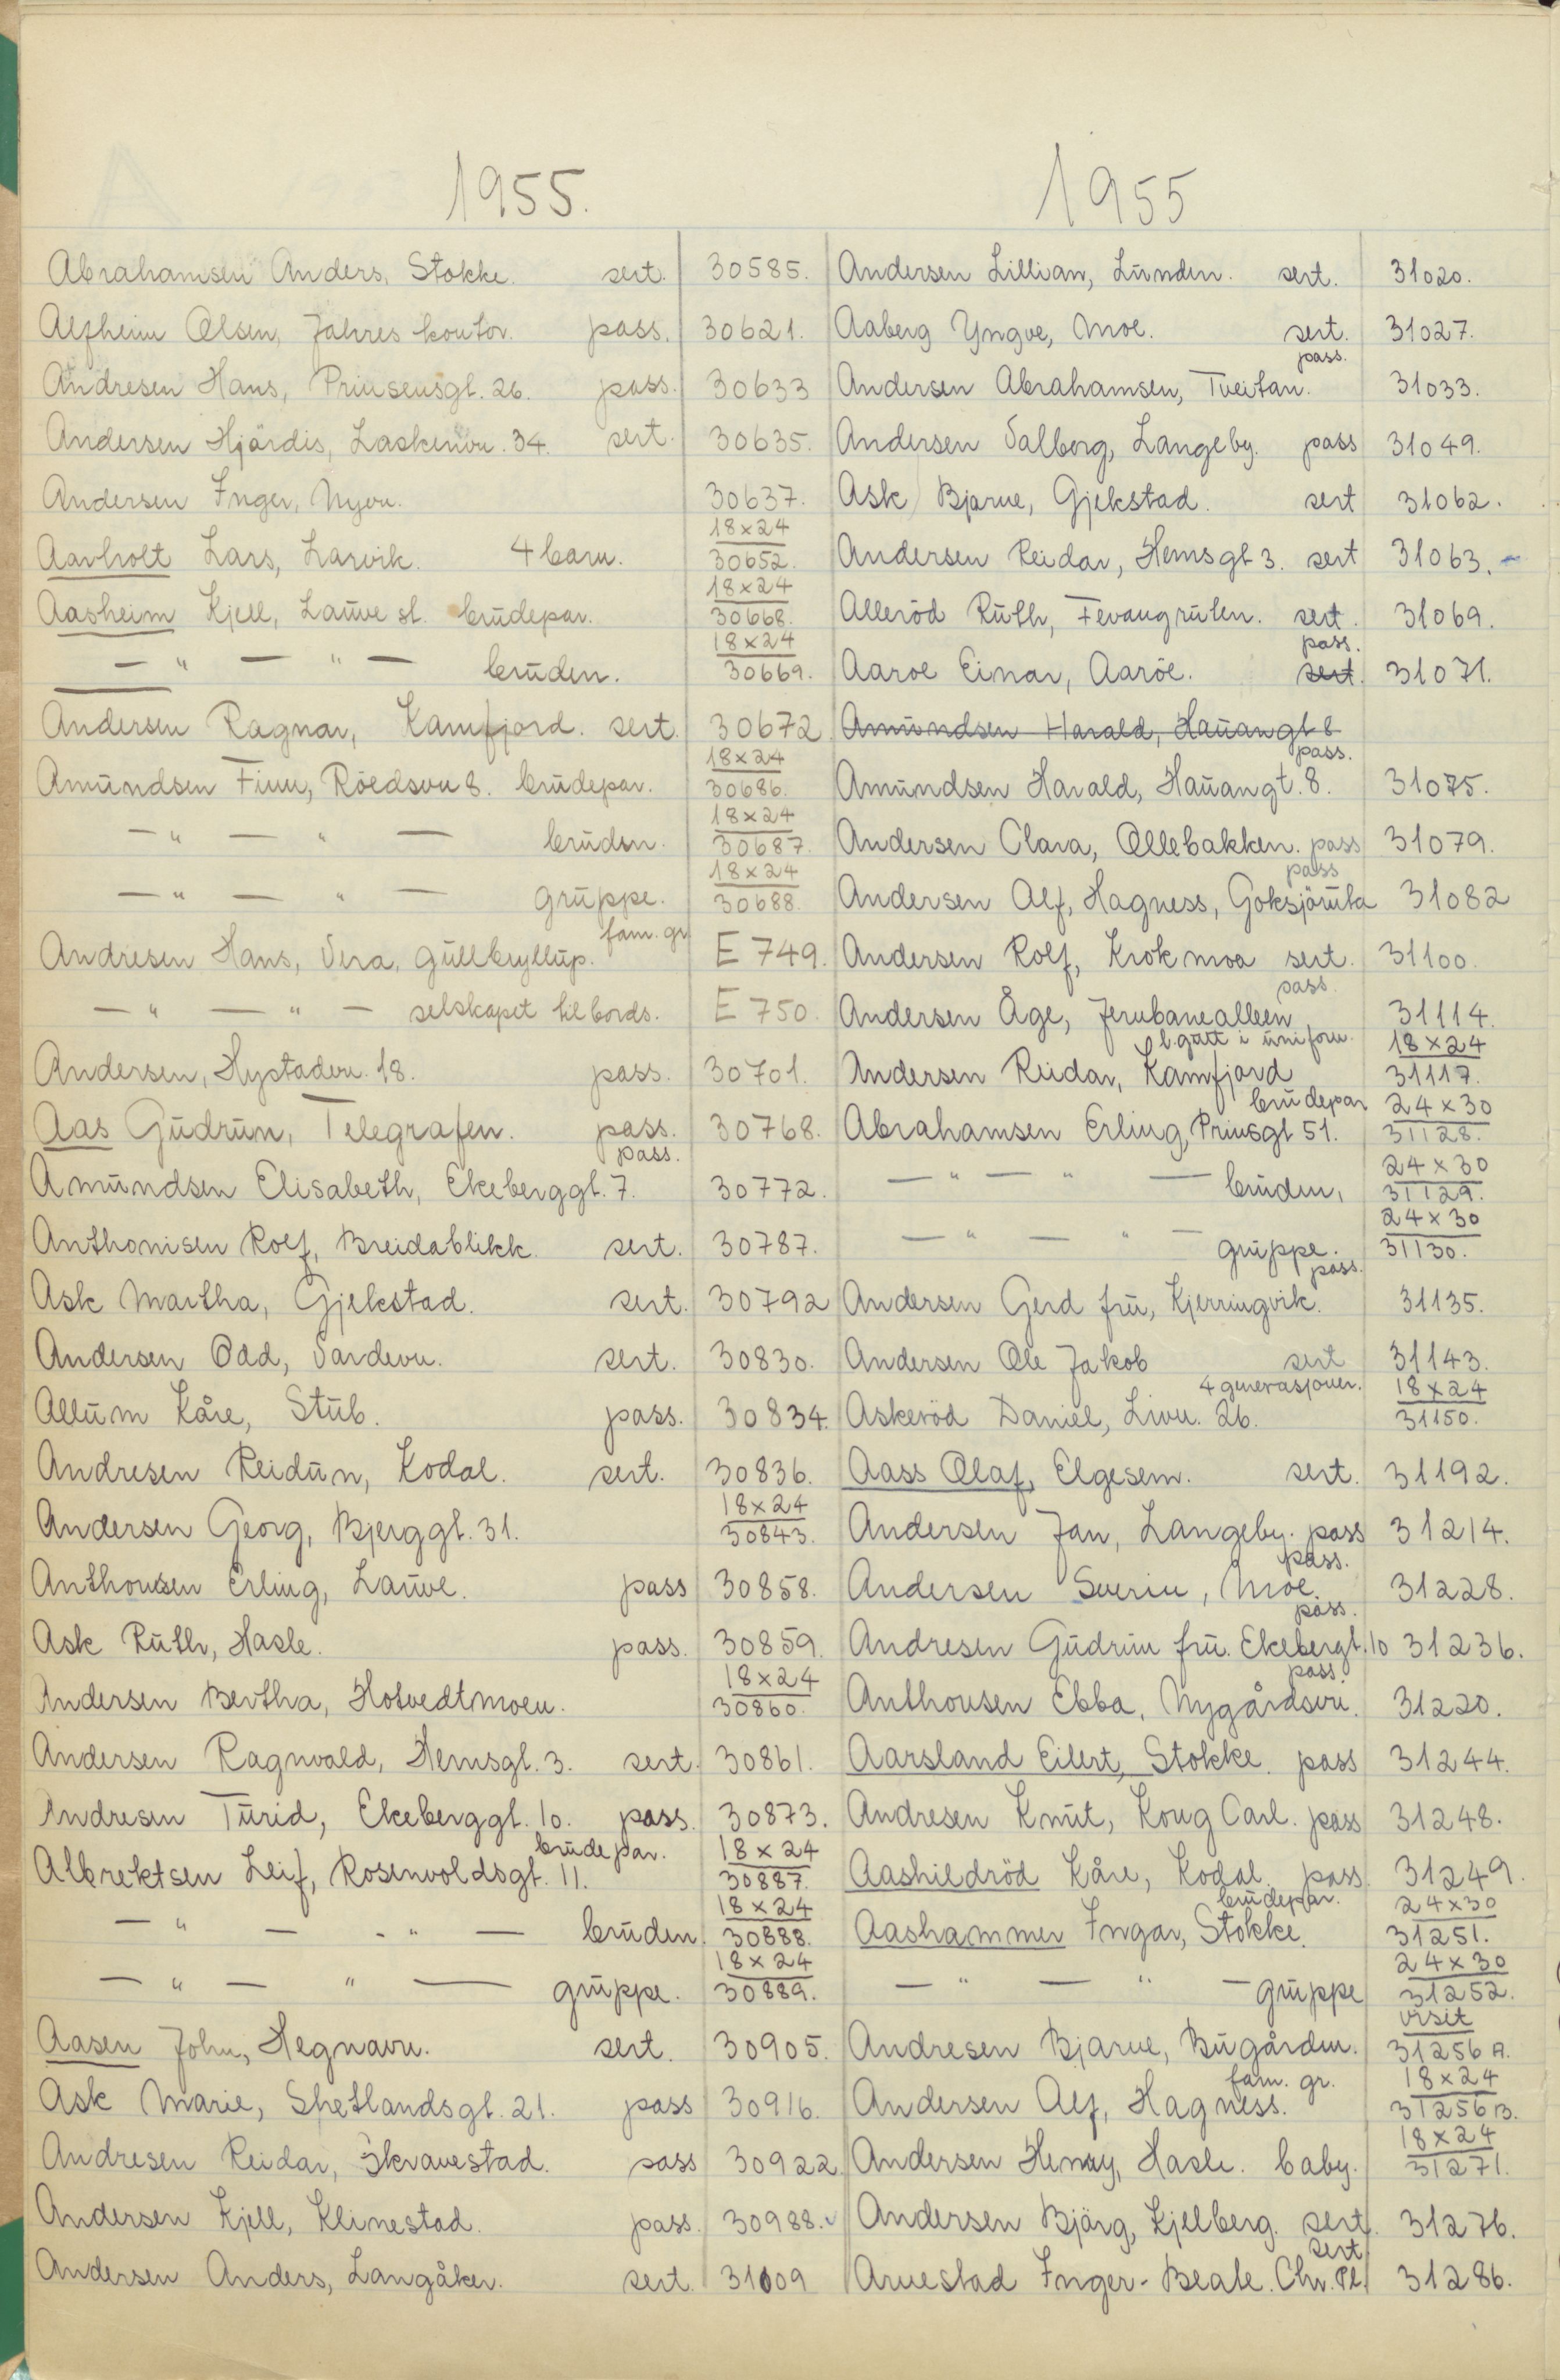 1955.
Abrahamsen Anders, Stokke. sert. 30585.
Alfheim Olsen, Jahres kontor. pass. 30621.
Andresen Hans, Prinsensgt. 26. pass. 30633
Andersen Hjördis, Laskenvn. 34. sert. 30635.
Andersen Inger, Nyvn. 30637.
Aavholt Lars, Larvik. 4 barn. 18x24 30652.
Aasheim Kjell, Lauve st. brudepar. 18x24 30668.
— " — " — bruden. 18x24 30669.
Andersen Ragnar, Kamfjord. sert. 30672
Amundsen Finn, Röedsvn 8. brudepar. 18x24 30686.
— " — " — bruden. 18x24 30687.
— " — " — gruppe. 18x24 30688.
Andresen Hans, Vera, gullbryllup. fam. gr E 749.
— " — " — selskapet til bords. E 750.
Andersen, Hystadvn. 18. pass. 30701.
Aas Gudrun, Telegrafen. pass. 30768.
Amundsen Elisabeth, Ekeberggt. 7. pass. 30772.
Anthonisen Rolf, Breidablikk. sert. 30787.
Ask Martha, Gjekstad. sert. 30792
Andersen Odd, Vardevn. sert. 30830.
Allum Kåre, Stub. pass. 30834.
Andresen Reidun, Kodal. sert. 30836.
Andersen Georg, Bjerggt. 31. 18x24 30843.
Anthonsen Erling, Lauve. pass 30858.
Ask Ruth, Hasle. pass. 30859.
Andersen Bertha, Hotvedtmoen. 18x24 30860.
Andersen Ragnvald, Hemsgt. 3. sert. 30861.
Andresen Turid, Ekeberggt. 10. pass. 30873.
Albrektsen Leif, Rosenvoldsgt. 11. brudepar. 18x24 30887.
— " — " — bruden. 18x24 30888.
— " — " — gruppe. 18x24 30889.
Aasen John, Hegnavn. sert. 30905.
Ask Marie, Shetlandsgt. 21. pass 30916.
Andresen Reidar, Skravestad. pass 30922
Andersen Kjell, Klinestad. pass. 30988.
Andersen Anders, Langåker. sert. 31009
1955
Andersen Lillian, Lunden. sert. 31020.
Aaberg Yngve, Moe. sert. 31027.
Andersen Abrahamsen, Tveitan. pass. 31033.
Andersen Valborg, Langeby. pass 31049.
Ask Bjarne, Gjekstad. sert 31062.
Andersen Reidar, Hemsgt 3. sert 31063.
Alleröd Ruth, Fevangruten. sert. 31069.
Aaroe Einar, Aaröe. pass. sert. 31071.
Amundsen Harald, Hauangt 8
Amundsen Harald, Hauangt. 8. pass. 31075.
Andersen Clara, Ollebakken. pass 31079.
Andersen Alf, Hagness, Goksjöruta pass 31082
Andersen Rolf, Krokmoa sert. 31100.
Andersen Åge, Jernbanealleen pass. 31114.
Andersen Reidar, Kamfjord b.gutt i uniform. 18x24 31117.
Abrahamsen Erling, Prinsgt 51. brudepar 24x30 31128.
— " — " — bruden, 24x30 31129.
— " — " — gruppe. 24x30 31130.
Andersen Gerd fru, Kjerringvik. pass. 31135.
Andersen Ole Jakob sert 31143.
Askeröd Daniel, Livn. 26. 4 generasjoner. 18x24 31150.
Aass Olaf, Elgesem. sert. 31192.
Andersen Jan, Langeby. pass 31214.
Andersen Severin, Moe. pass. 31228.
Andresen Gudrun fru. Ekebergt. 10 pass. 31236.
Anthonsen Ebba, Nygårdsvn. pass. 31220.
Aarsland Eilert, Stokke. pass 31244.
Andresen Knut, Kong Carl. pass 31248.
Aashildröd Kåre, Kodal. pass. 31249.
Aashammer Ingar, Stokke. brudepar. 24x30 31251.
— " — " — gruppe 24x30 31252.
Andresen Bjarne, Bugården. visit 31256 A.
Andersen Alf, Hagness. fam. gr. 18x24 31256 B.
Andersen Henny, Hasle. baby. 18x24 31271.
Andersen Bjärg, Kjellberg. sert. 31276.
Arnestad Inger-Beate. Chr. Pl. sert 31286.